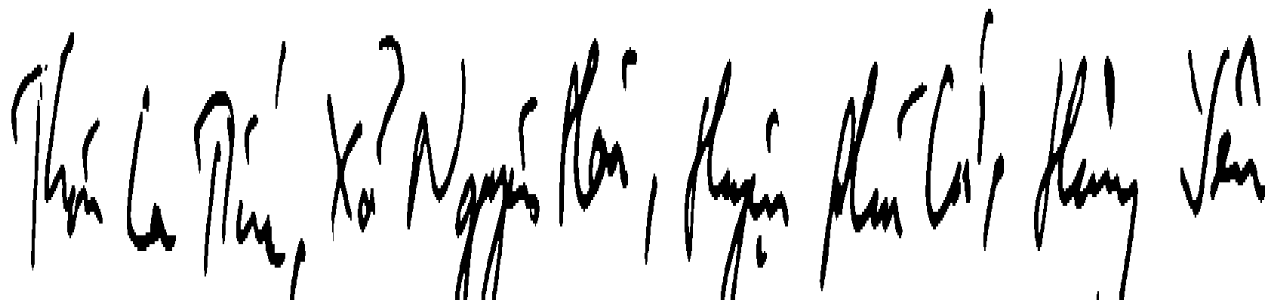 Thôn La Tiến, Xã Nguyên Hoà, Huyện Phù Cừ, Hưng Yên